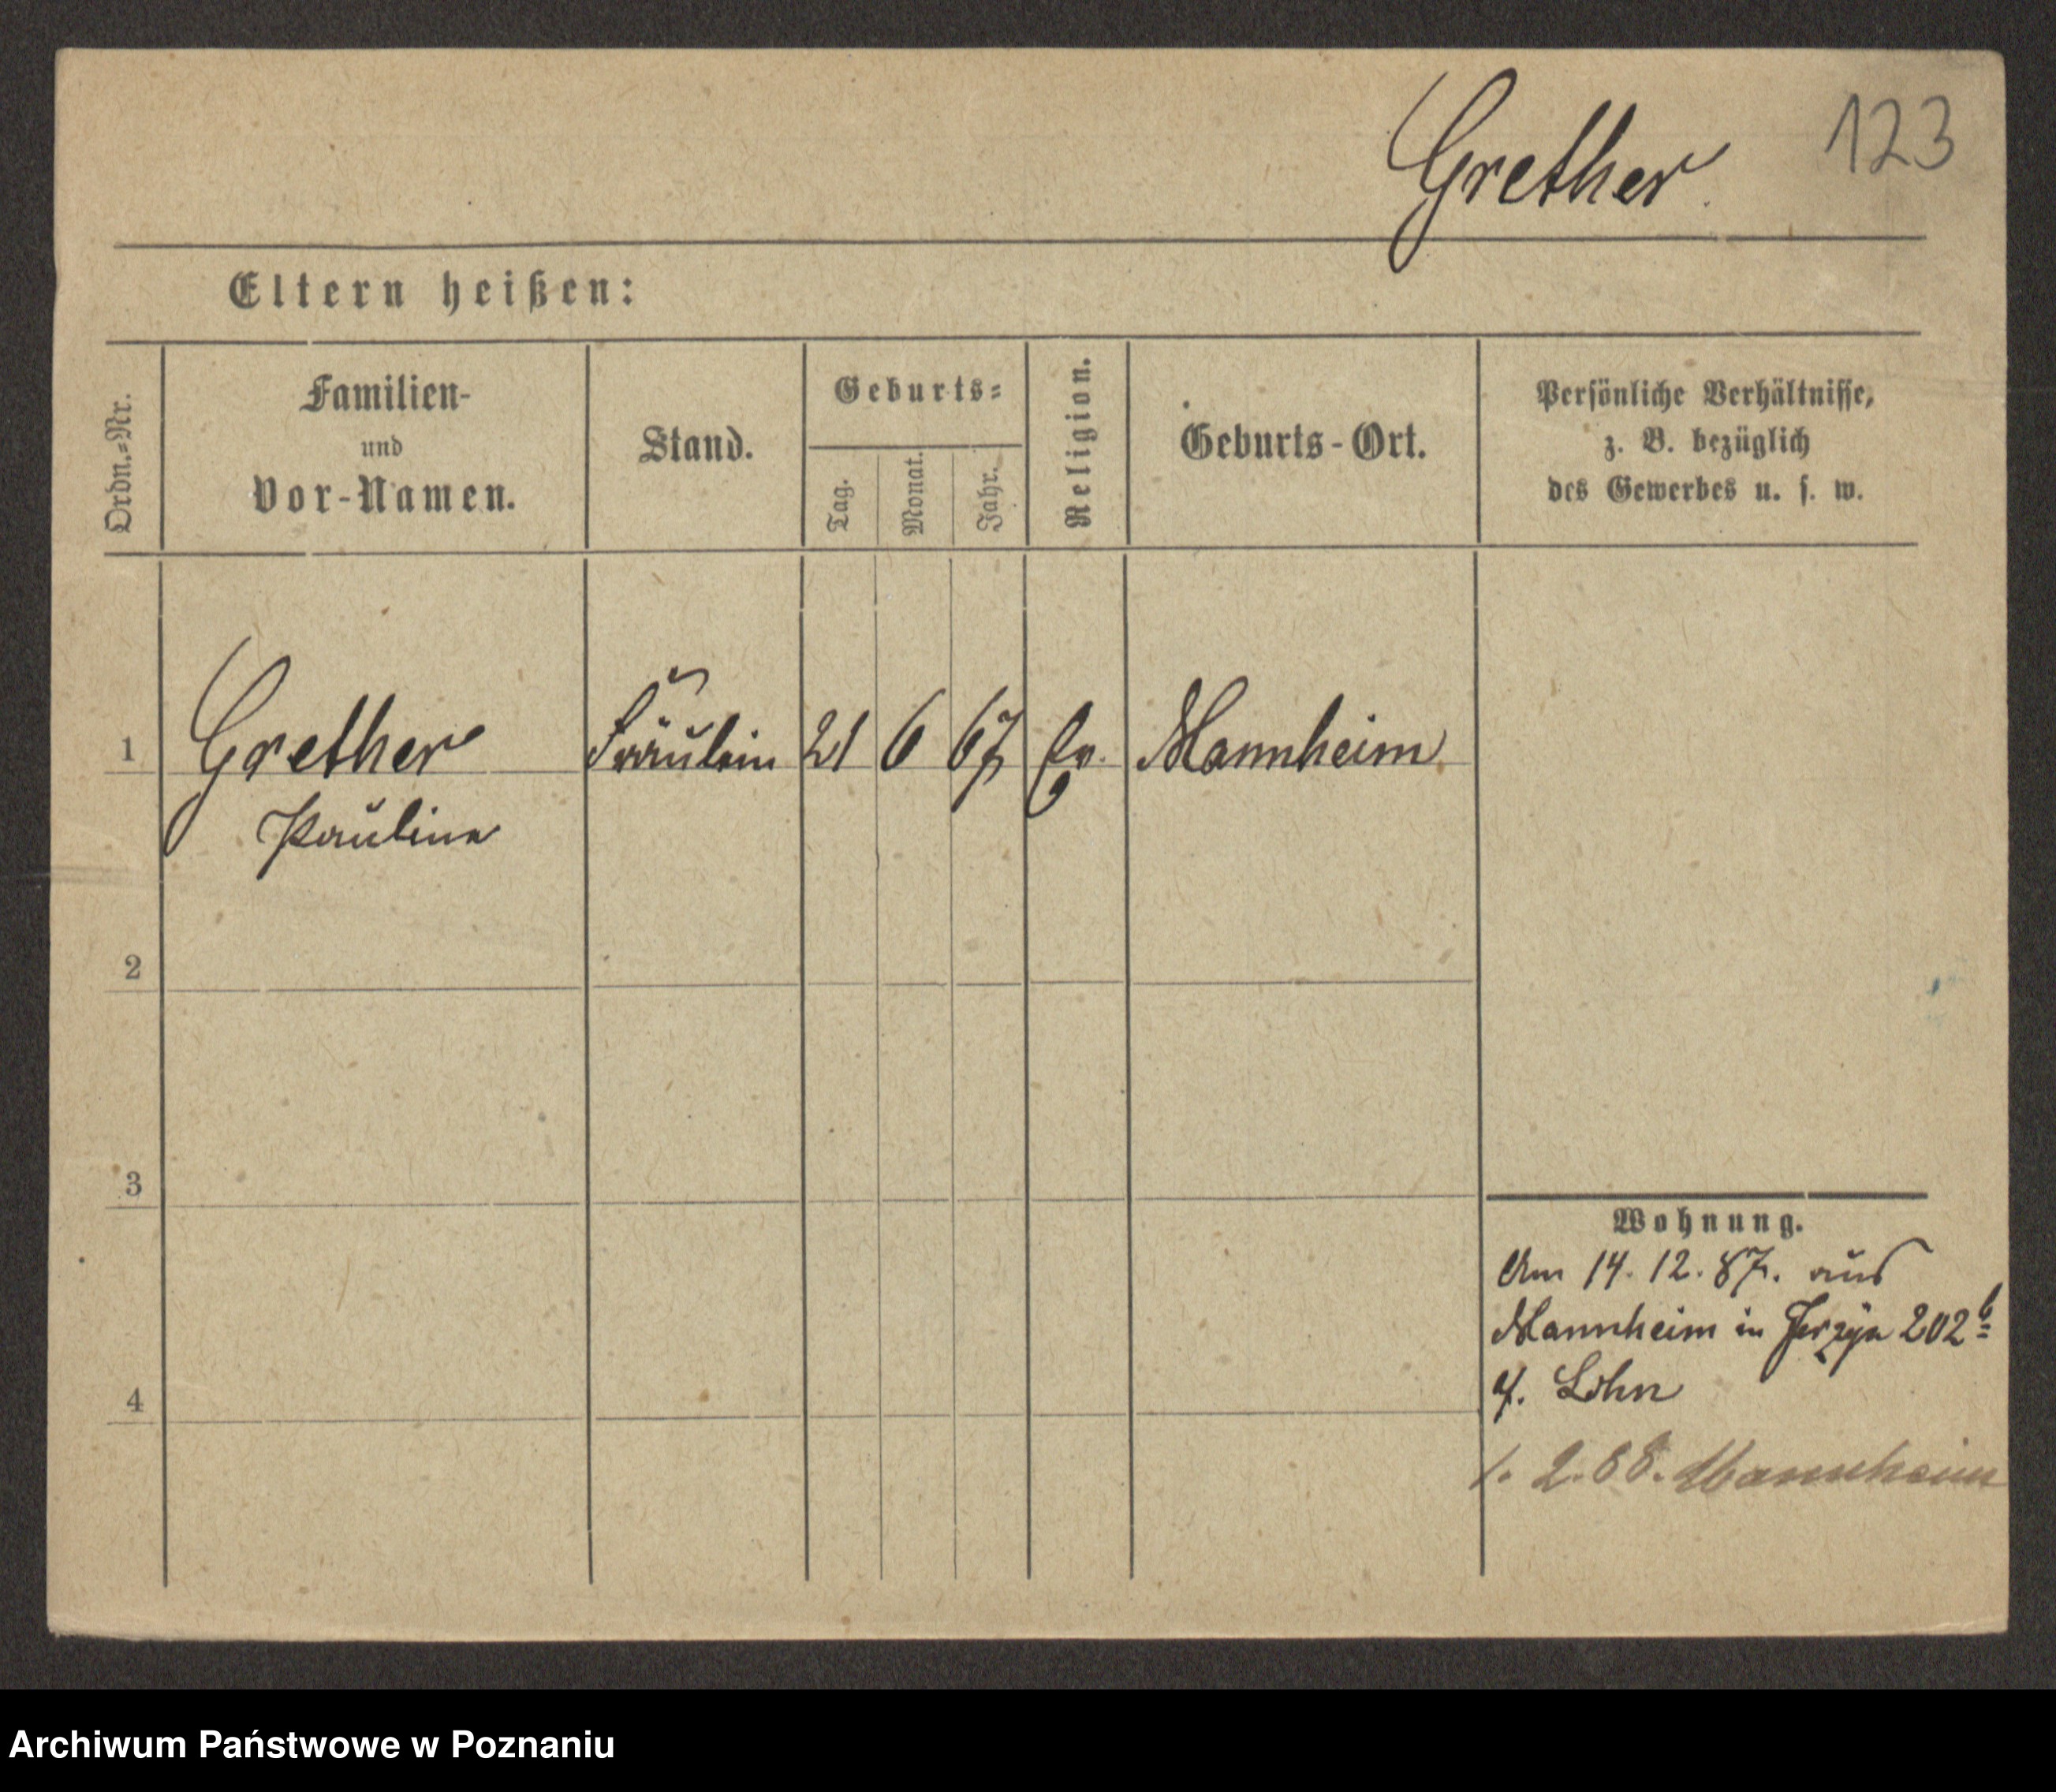 123
Grether
Eltern heißen:
Ordn.-Nr.
Familien-
und
Vor-Namen.
Stand.
Geburts-
Tag.
Monat.
Jahr.
Religion.
Geburts-Ort.
Persönliche Verhältnisse,
z. B. bezüglich
des Gewerbes u. s. w.
1 Grether Fräulein 21 6 67 Ev. Mannheim
Pauline
2
3
4
Wohnung.
Am 14. 12. 87. aus
Mannheim in Jerzyce 202b
Lohn
1. 2. 88. Mannheim
Archiwum Państwowe w Poznaniu